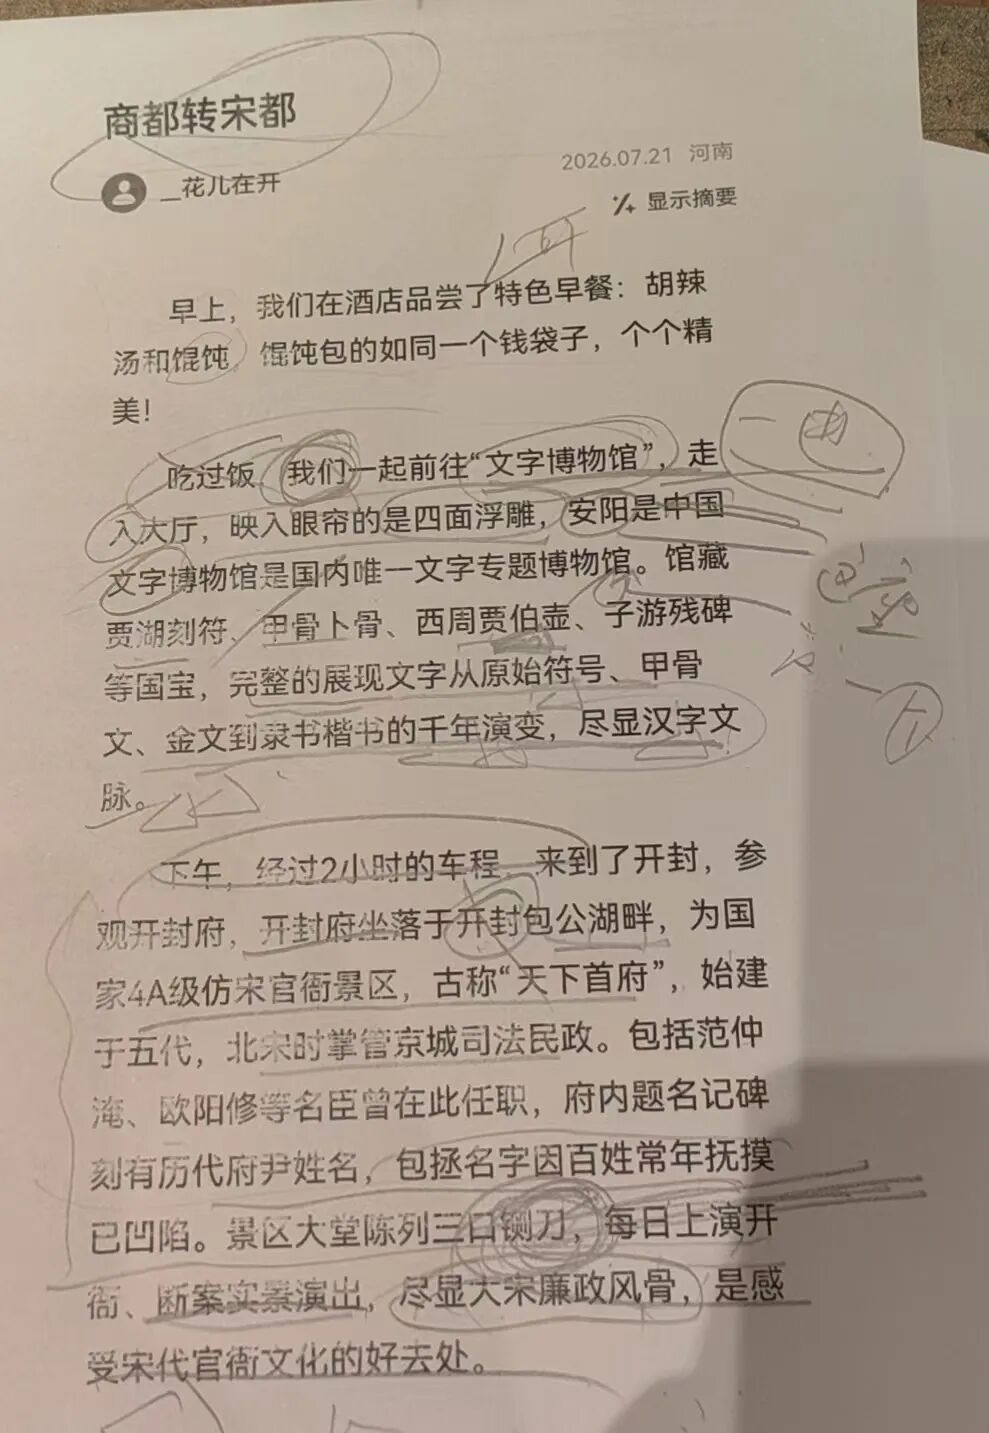 商都转宋都
2026.07.21 河南
__花儿在开
显示摘要
早上，我们在酒店品尝了特色早餐：胡辣
汤和馄饨，馄饨包的如同一个钱袋子，个个精
美！
吃过饭，我们一起前往“文字博物馆”，走
入大厅，映入眼帘的是四面浮雕，安阳是中国
文字博物馆是国内唯一文字专题博物馆。馆藏
贾湖刻符、甲骨卜骨、西周贾伯壶、子游残碑
等国宝，完整的展现文字从原始符号、甲骨
文、金文到隶书楷书的千年演变，尽显汉字文
脉。
下午，经过2小时的车程，来到了开封，参
观开封府，开封府坐落于开封包公湖畔，为国
家4A级仿宋官衙景区，古称“天下首府”，始建
于五代，北宋时掌管京城司法民政。包括范仲
淹、欧阳修等名臣曾在此任职，府内题名记碑
刻有历代府尹姓名，包拯名字因百姓常年抚摸
已凹陷。景区大堂陈列三口铡刀，每日上演开
衙、断案实景演出，尽显大宋廉政风骨，是感
受宋代官衙文化的好去处。